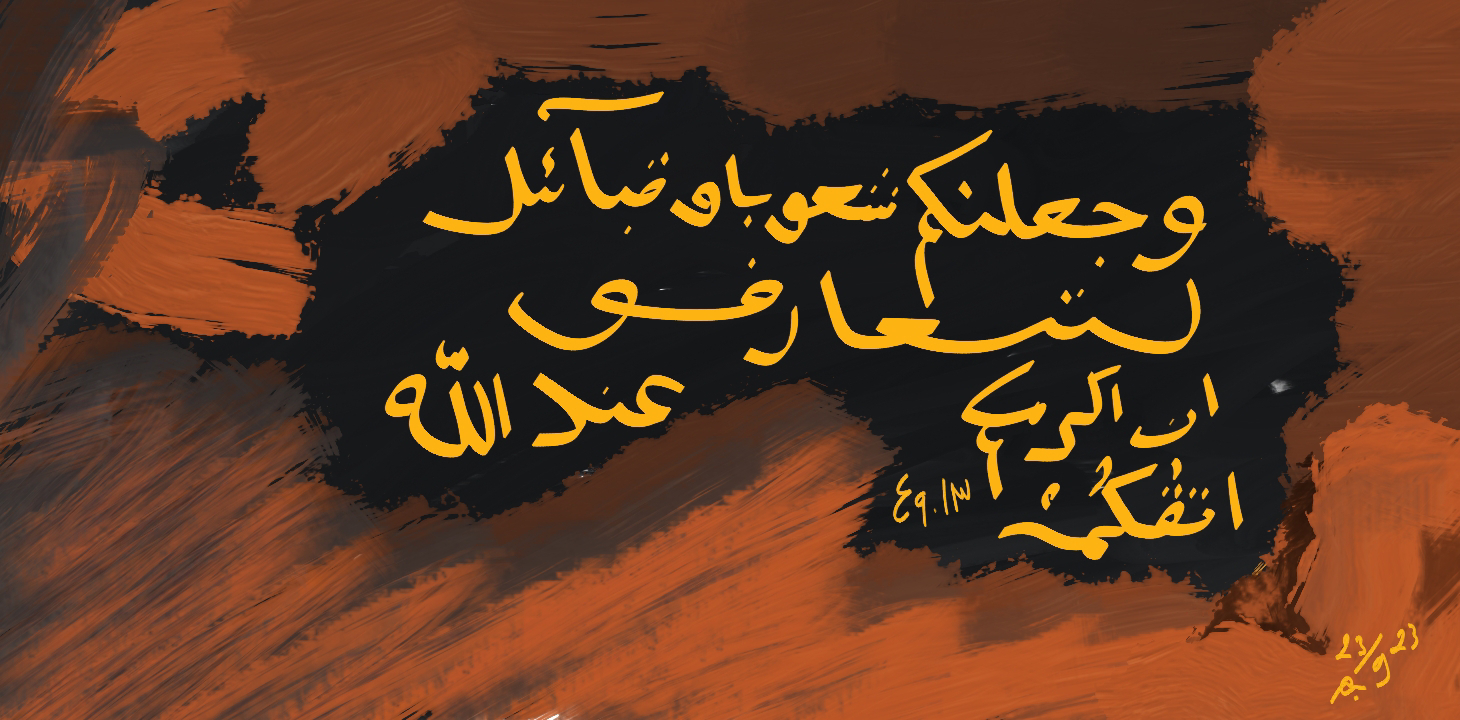 وجعلنكم شعوبا وقبائل
لتعارفو
ان اكرمكم عند الله
اتقكم
٤٩.١٣
23/9 23